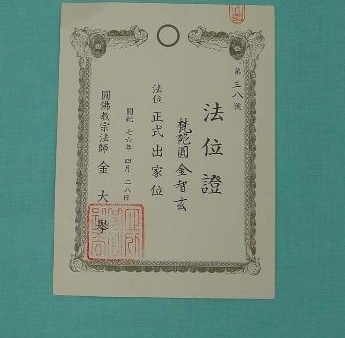 第三八號
法位證
梵陀圓 金智玄
法位 正式出家位
圓紀 七六年 四月 二八日
圓佛教宗法師 金大擧